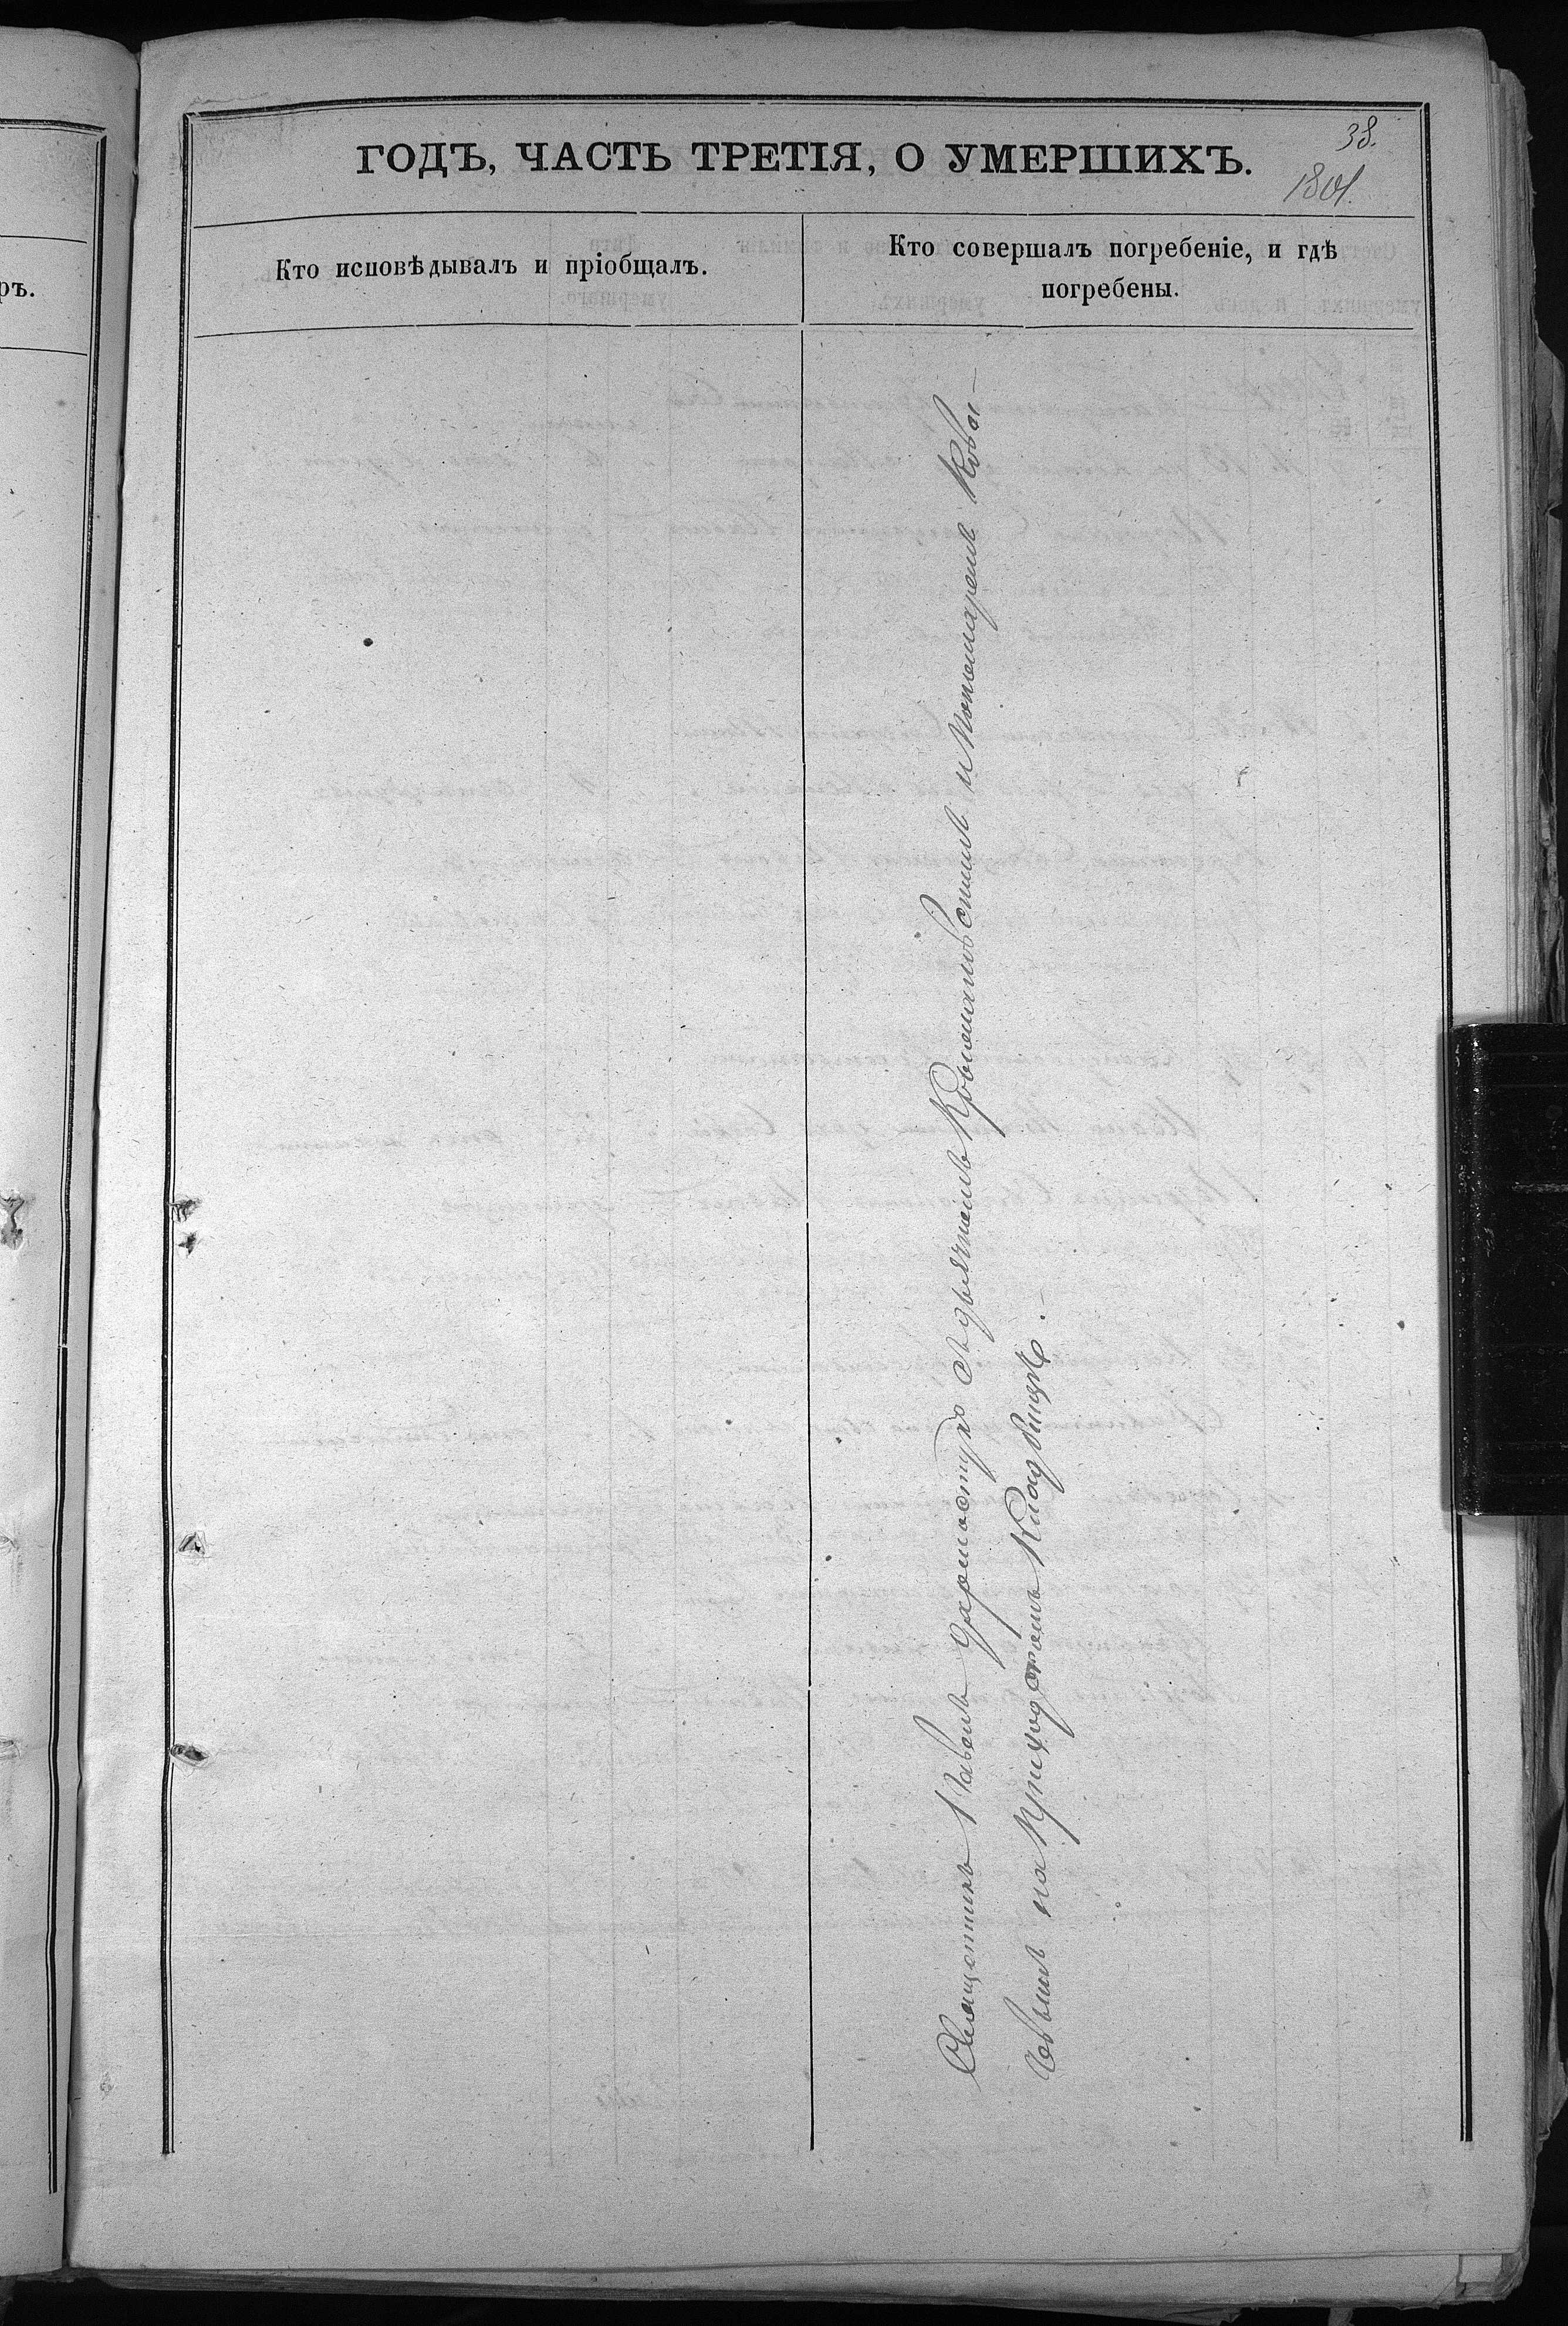 38.
ГОДЪ, ЧАСТЬ ТРЕТІЯ, О УМЕРШИХЪ.
Кто исповѣдывалъ и пріобщалъ.
Кто совершалъ погребеніе, и гдѣ
погребены.
Священникъ Павелъ съ дьячкомъ и Пономаремъ Кова-
чевымъ на Приходскомъ Кладбищѣ.
ръ.